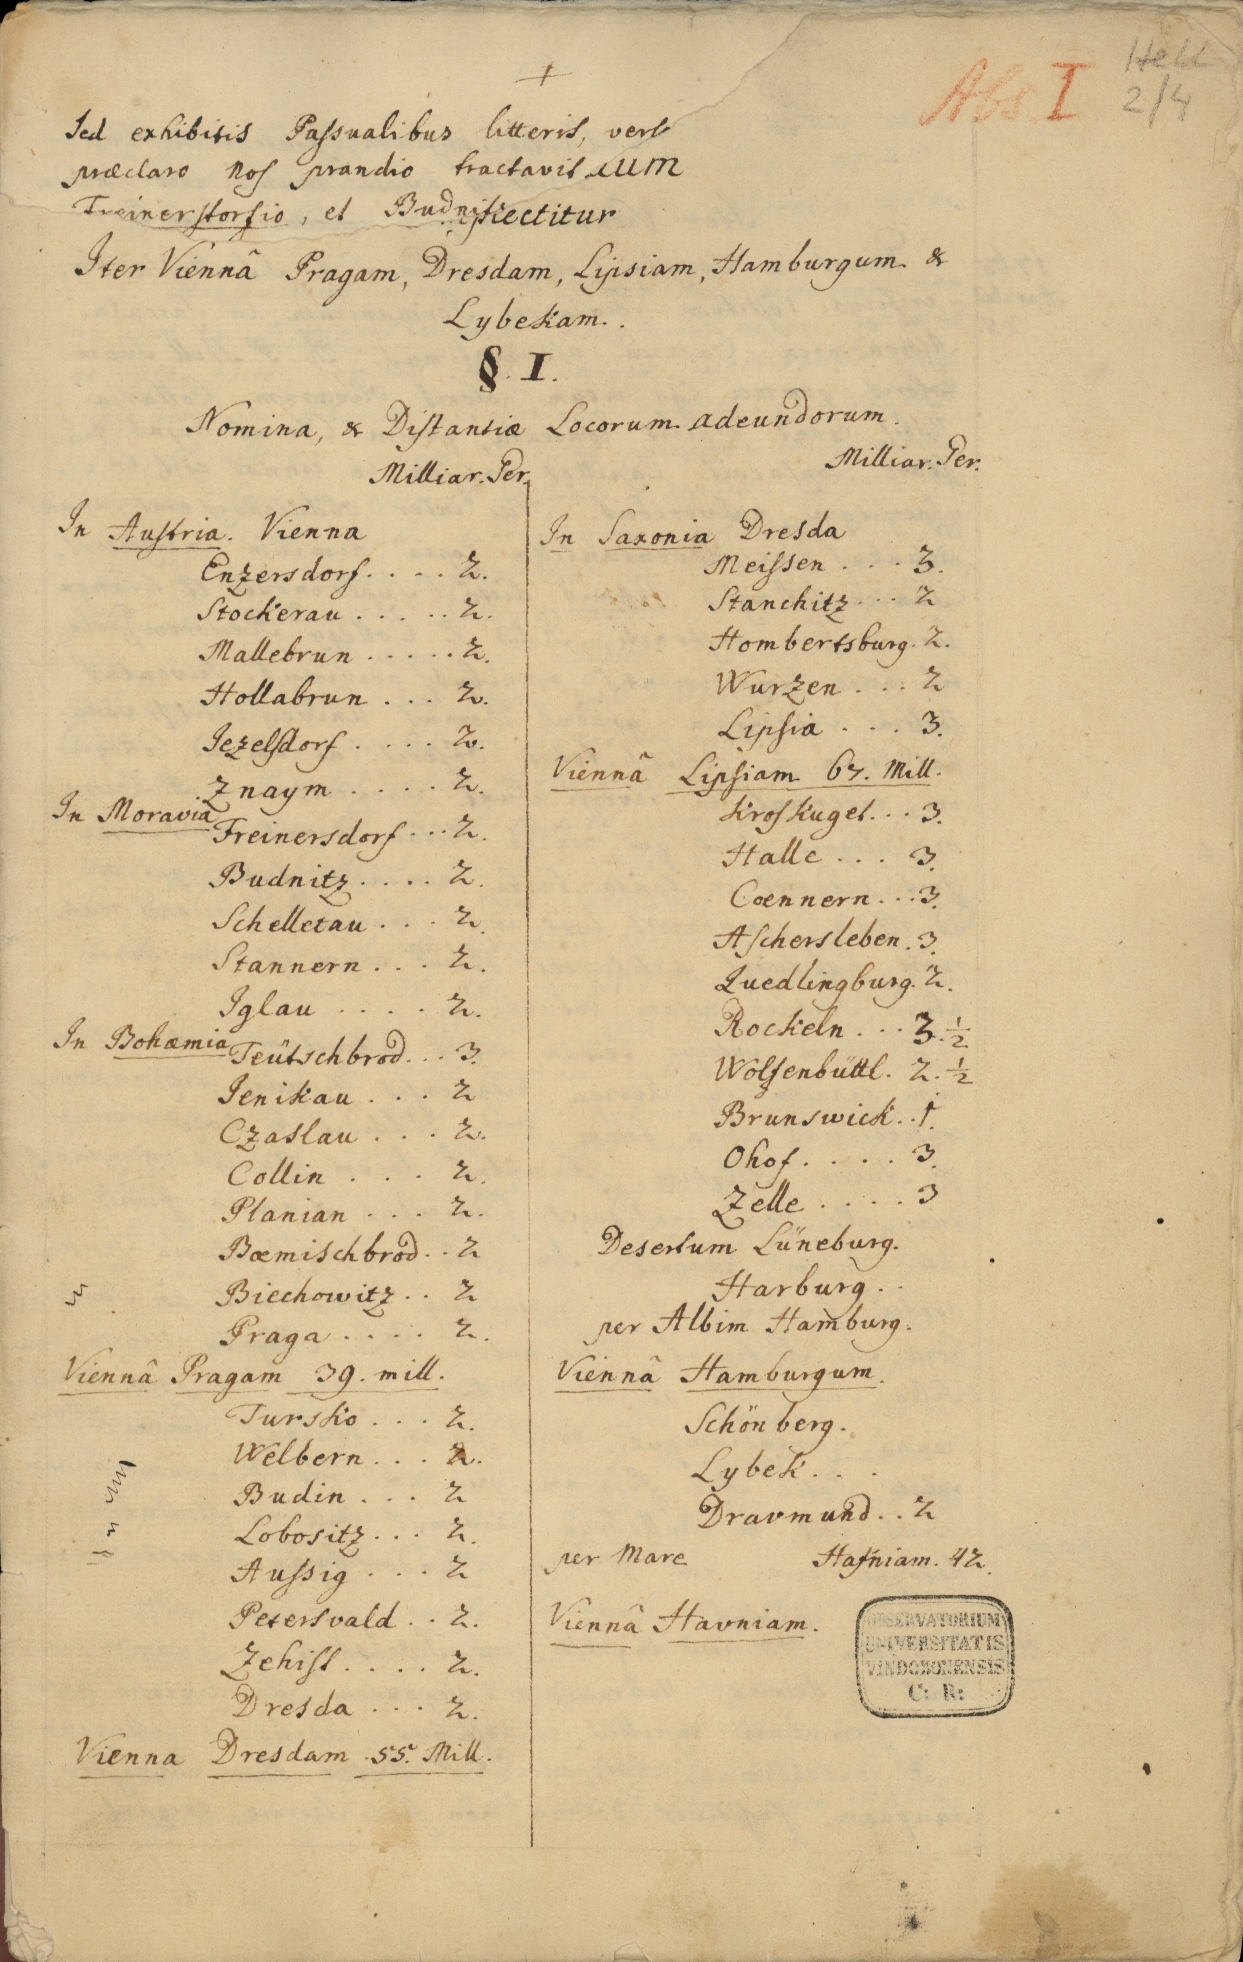 +
Abs. I
Hell
2/4
Sed exhibitis Passualibus litteris, vers
præclaro nos prandio tractavit cum
Freinerstorfio, et Budnitz
Iter Viennâ Pragam, Dresdam, Lipsiam, Hamburgum &
Lybekam.
§. I.
Nomina, & Distantiæ Locorum adeundorum.
Milliar. Ger.
In Austria. Vienna
Enzersdorf .... 2.
Stockerau ..... 2.
Mallebrun ..... 2.
Hollabrun ... 2.
Jezelsdorf .... 2.
Znaym .... 2.
In Moravia
Freinersdorf ... 2.
Budnitz .... 2.
Schelletau ... 2.
Stannern ... 2.
Iglau .... 2.
In Bohæmia Teütschbrod ... 3.
Jenikau ... 2
Czaslau ... 2.
Collin ... 2.
Planian ... 2.
Bœmischbrod .. 2
Biechowitz .. 2
Praga .... 2.
Viennâ Pragam 39. mill.
Tursko ... 2.
Welbern ... 2.
Budin ... 2
Lobositz ... 2.
Aussig ... 2
Petersvald .. 2.
Zehist .... 2.
Dresda ... 2.
Vienna Dresdam 55. Mill.
Milliar. Ger.
In Saxonia Dresda
Meissen ... 3.
Stanchitz ... 2
Hombertsburg. 2.
Wurzen ... 2
Lipsia ... 3.
Viennâ Lipsiam 67. Mill.
Kroskugel ... 3.
Halle ... 3.
Cœnnern ... 3.
Aschersleben. 3.
Quedlingburg. 2.
Rockeln ... 3. ½
Wolfenbüttl. 2. ½
Brunswick .. 1.
Ohof .... 3.
Zelle .... 3
Desertum Lüneburg.
Harburg ..
per Albim Hamburg.
Viennâ Hamburgum.
Schönberg.
Lybek ...
Dravmund .. 2
per Mare Hafniam. 42.
Viennâ Havniam.
OBSERVATORIUM
UNIVERSITATIS
VINDOBONENSIS
C: R: